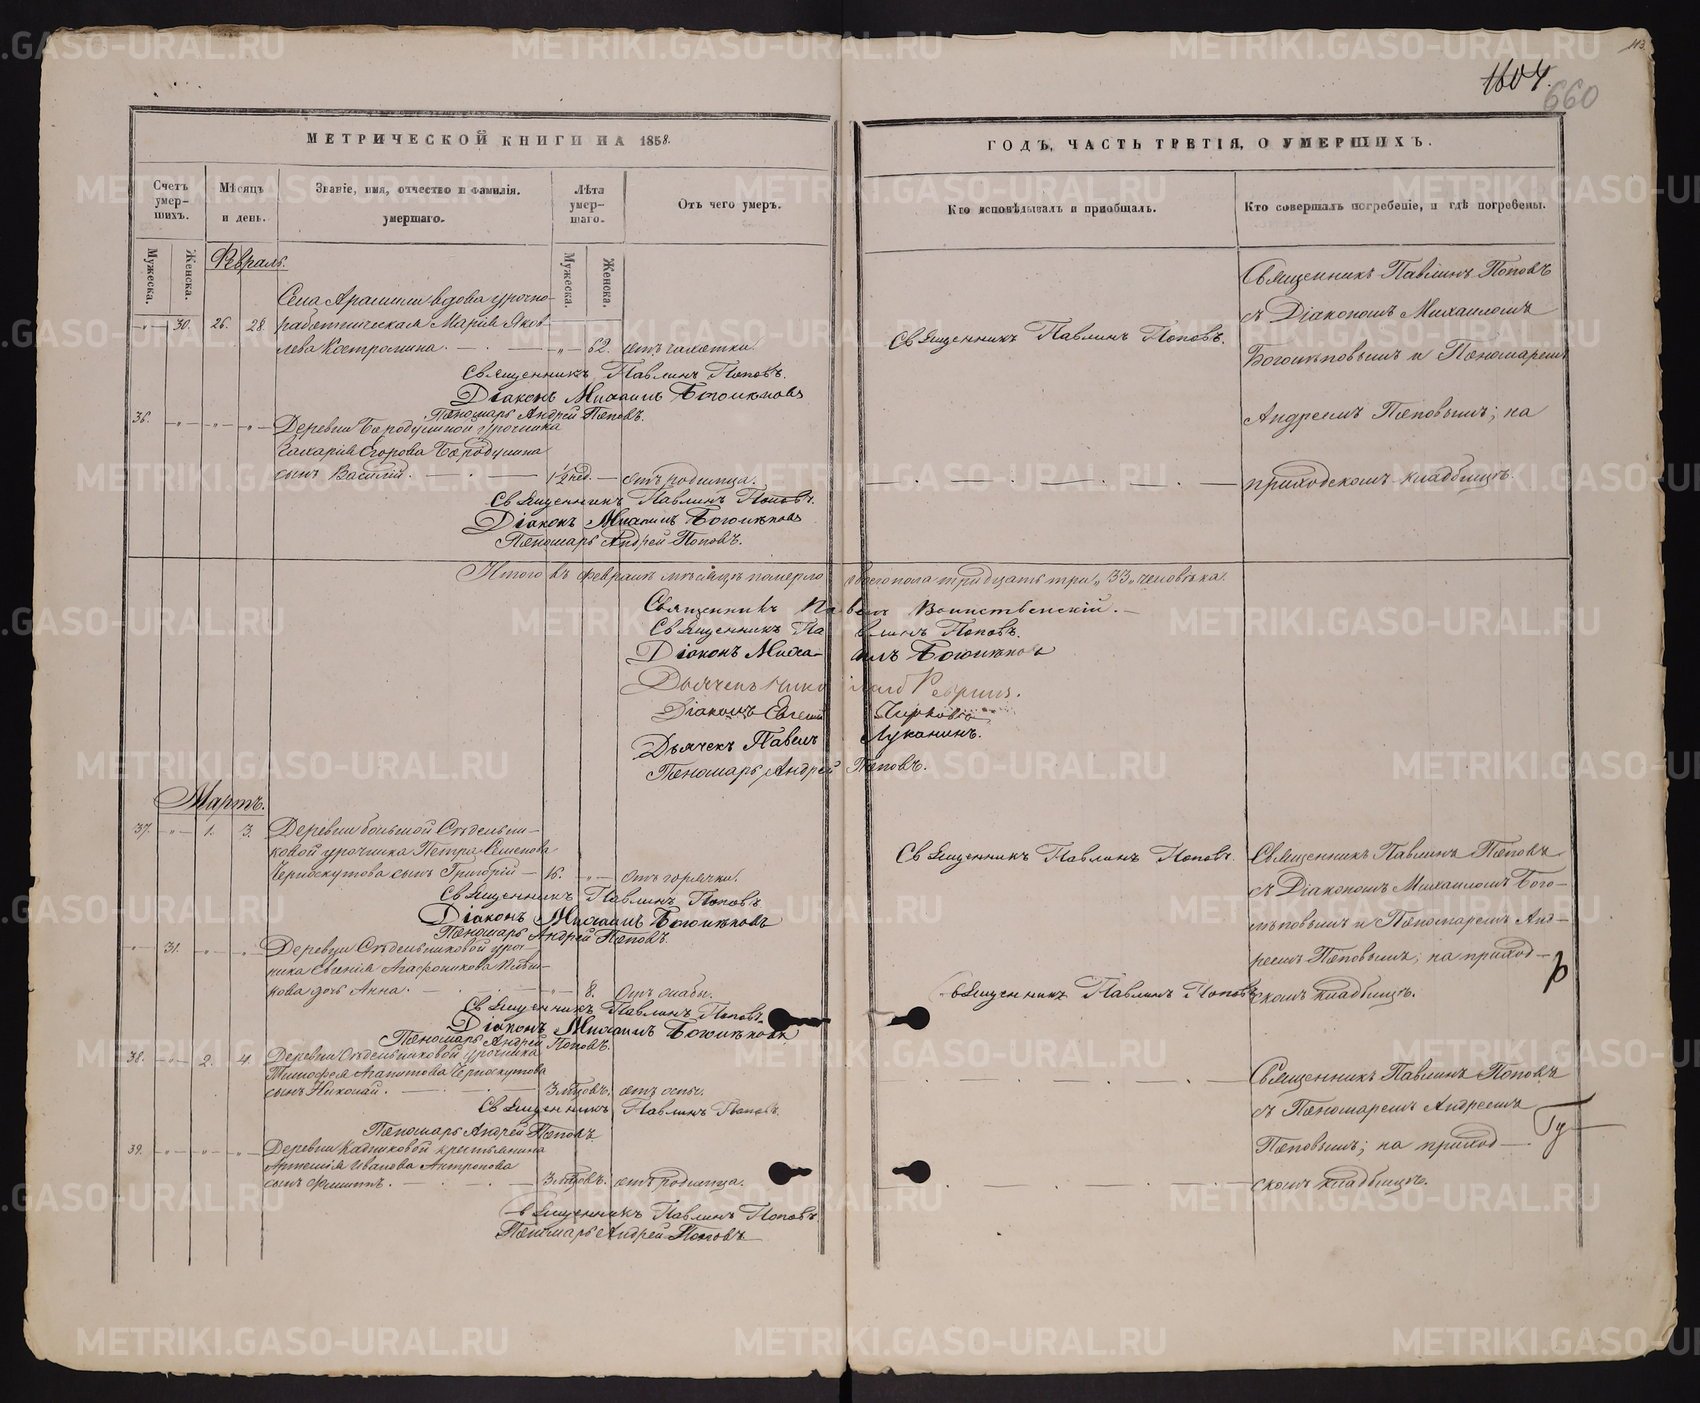 1604.
660
МЕТРИЧЕСКОЙ КНИГИ НА 1858.
ГОДЪ, ЧАСТЬ ТРЕТІЯ, О УМЕРШИХЪ.
Счетъ умер-шихъ.
Мѣсяцъ и день.
Званіе, имя, отчество и фамилія. умершаго.
Лѣта умер-шаго.
Отъ чего умеръ.
Кто исповѣдывалъ и пріобщалъ.
Кто совершалъ погребеніе, и гдѣ погребены.
Мужеска.
Женска.
Мужеска.
Женска.
Февраль.
Села Арамили вдова урочно-
30. 26. 28. работническая Марія Яков-
лева Костромина. 62. отъ чахотки.
Священникъ Павлинъ Поповъ.
Священникъ Павлинъ Поповъ
съ Діакономъ Михаиломъ
и Пономаремъ
Андреемъ Поповымъ; на
приходскомъ кладбищѣ.
Священникъ Павлинъ Поповъ.
Діаконъ Михаилъ
Пономарь Андрей Поповъ.
36. Деревни Бородулиной урочника
Захарія Егорова Бородулина
сынъ Василій. 1½ нед. отъ родимца.
Священникъ Павлинъ Поповъ.
Діаконъ Михаилъ
Пономарь Андрей Поповъ.
Итого въ февралѣ мѣсяцѣ померло обоего пола тридцать три „33„ человѣка.
Священникъ Павелъ Воинственскій.
Священникъ Павлинъ Поповъ.
Діаконъ Михаилъ
Дьячекъ
Діаконъ Евгеній
Дьячекъ Павелъ Луканинъ.
Пономарь Андрей Поповъ.
Мартъ.
37. 1. 3. Деревни большой Сѣдельни-
ковой урочника Петра Семенова
Черноскутова сынъ Григорій 16. отъ горячки.
Священникъ Павлинъ Поповъ.
Священникъ Павлинъ Поповъ
съ Діакономъ Михаиломъ
и Пономаремъ Анд-
реемъ Поповымъ; на приход-
скомъ кладбищѣ.
Священникъ Павлинъ Поповъ
Діаконъ Михаилъ
Пономарь Андрей Поповъ.
31. Деревни Сѣдельниковой уроч-
ника Евгенія Агафоникова
дочь Анна. 8.
Священникъ Павлинъ Поповъ
Священникъ Павлинъ Поповъ.
Діаконъ Михаилъ
Пономарь Андрей Поповъ.
38. 2. 4. Деревни Сѣдельниковой урочника
Тимофея Агапитова Черноскутова
сынъ Николай. отъ оспы.
Священникъ Павлинъ Поповъ.
Пономарь Андрей Поповъ
Священникъ Павлинъ Поповъ
съ Пономаремъ Андреемъ
Поповымъ; на приход-
скомъ кладбищѣ.
39. Деревни Кадниковой крестьянина
Артемія Иванова Антропова
сынъ Филиппъ. отъ родимца.
Священникъ Павлинъ Поповъ
Пономарь Андрей Поповъ
METRIKI.GASO-URAL.RU